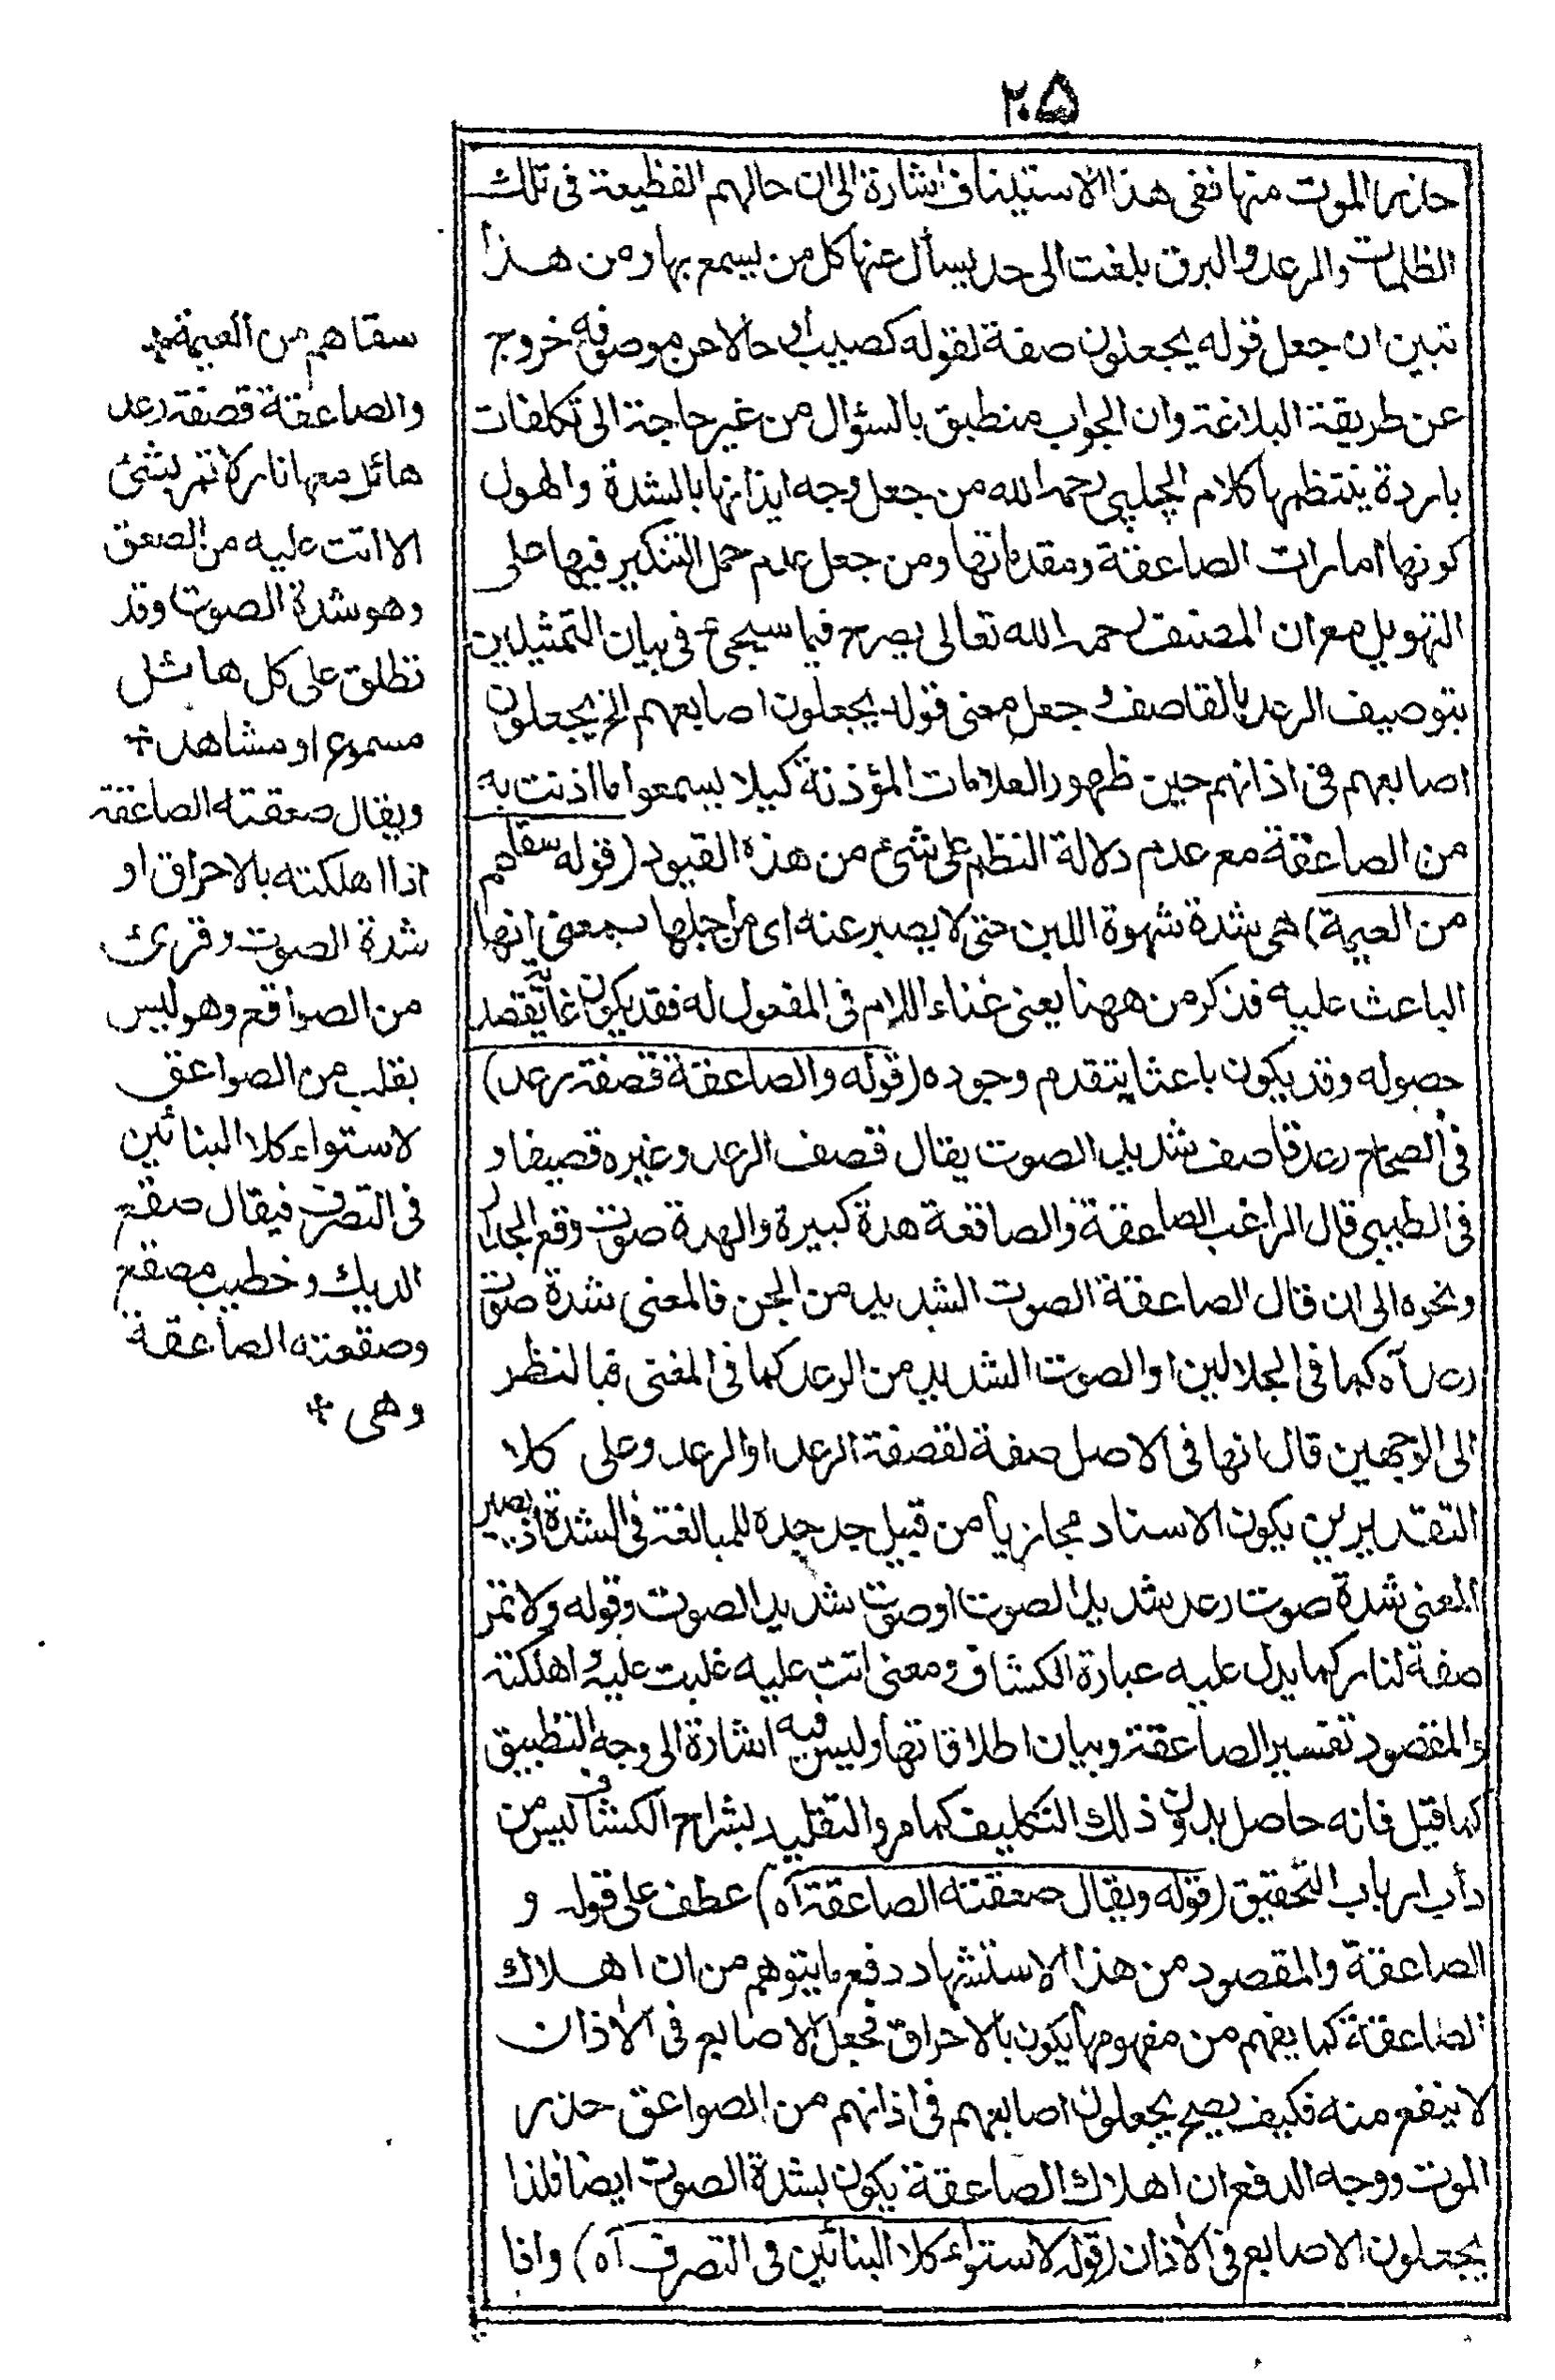 ٢٠٥
حذر الموت منها ففى هذا الاستيناف اشارة الى ان حالهم الفظيعة فى تلك
الظلمات والرعد والبرق بلغت الى حد يسأل عنها كل من يسمع بها ومن هذا
تبين ان جعل قوله يجعلون صفة لقوله كصيب او حالا من موصوفه خروج
عن طريقة البلاغة وان الجواب منطبق بالسؤال من غير حاجة الى تكلفات
باردة ينتظمها كلام الچلپى رحمه الله من جعل وجه ايذانها بالشدة والهول
كونها امارات الصاعقة ومقدماتها ومن جعل عدم حمل التنكير فيها على
التهويل مع ان المصنف رحمه الله تعالى يصرح فيما سيجئ فى بيان التمثيلين
بتوصيف الرعد بالقاصف و جعل معنى قوله يجعلون اصابعهم الخ يجعلون
اصابعهم فى اذانهم حين ظهور العلامات المؤذنة كيلا يسمعوا ما اذنت به
من الصاعقة مع عدم دلالة النظم على شئ من هذه القيود (قوله سقاهم
من العيمة) هى شدة شهوة اللبن حتى لا يصبر عنه اى من اجلها بمعنى انها
الباعث عليه فذكر من ههنا يعنى غناء اللام فى المفعول له فقد يكون غاية يقصد
حصوله وقد يكون باعثا يتقدم وجوده (قوله والصاعقة قصفة رعد)
فى الصحاح رعد قاصف شديد الصوت يقال قصف الرعد وغيره قصيفا و
فى الطيبى قال الراغب الصاعقة والصاقعة هدة كبيرة والهدة صوت وقع الجدار
ونحوه الى ان قال الصاعقة الصوت الشديد من الجن فالمعنى شدة صوت
رعد آه كما فى الجلالين او الصوت الشديد من الرعد كما فى المغنى فبالنظر
الى الوجهين قال انها فى الاصل صفة لقصفة الرعد او الرعد وعلى كلا
التقديرين يكون الاسناد مجازيا من قبيل جد جده للمبالغة فى الشدة اذ يصير
المعنى شدة صوت رعد شديد الصوت او صوت شديد الصوت وقوله ولا تمر
صفة لنار كما يدل عليه عبارة الكشاف ومعنى اتت عليه غلبت عليه واهلكته
والمقصود تفسير الصاعقة وبيان اطلاقاتها وليس فيه اشارة الى وجه التطبيق
كما قيل فانه حاصل بدون ذلك التكليف كما مر والتقليد لشراح الكشاف ليس من
دأب ارباب التحقيق (قوله ويقال صعقته الصاعقة آه) عطف على قوله و
الصاعقة والمقصود من هذا الاستشهاد دفع ما يتوهم من ان اهلاك
الصاعقة كما يفهم من مفهومها يكون بالاحراق فجعل الاصابع فى الاذان
لا ينفع منه فكيف يصح يجعلون اصابعهم فى اذانهم من الصواعق حذر
الموت ووجه الدفع ان اهلاك الصاعقة يكون بشدة الصوت ايضا فلذا
يجعلون الاصابع فى الاذان (قوله لاستواء كلا البنائين فى التصرف آه) واذا
سقاهم من العيمة*
والصاعقة قصفة رعد
هائل معها نار لا تمر بشئ
الا اتت عليه من الصعق
وهو شدة الصوت وقد
تطلق على كل هائل
مسموع او مشاهد*
ويقال صعقته الصاعقة
اذا اهلكته بالاحراق او
شدة الصوت وقرئ
من الصواقع وهو ليس
بقلب من الصواعق
لاستواء كلا البنائين
فى التصرف فيقال صقع
الديك وخطيب مصقع
وصقعته الصاعقة
وهى *